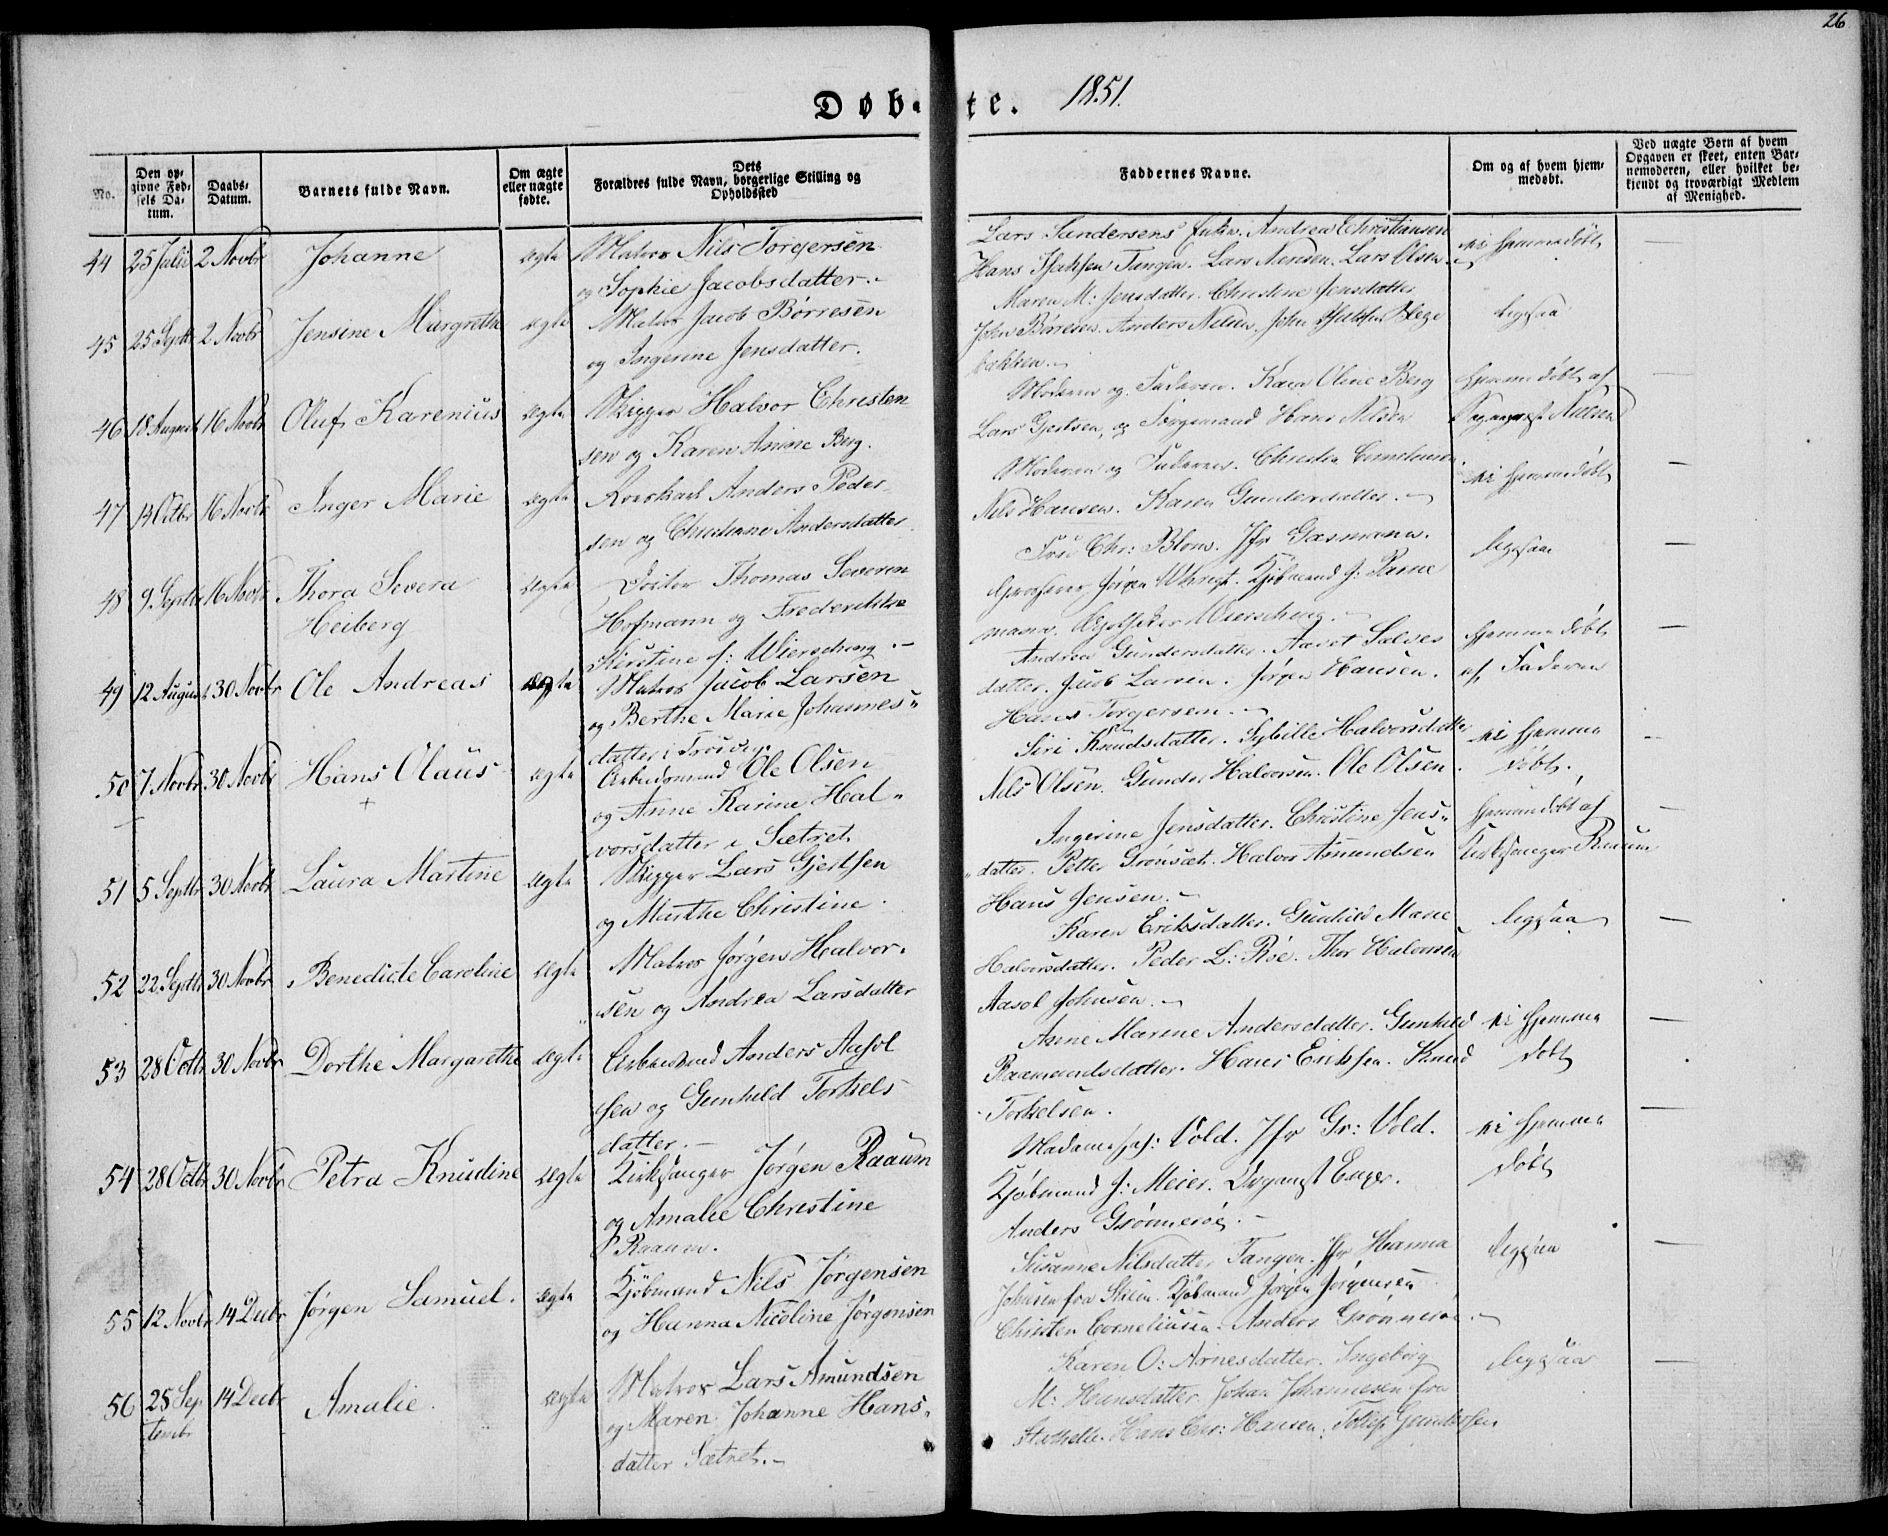 26
Døbte. 1851.
No.
Den opgivne Fødsels Datum.
Daabs-Datum.
Barnets fulde Navn.
Om ægte eller uægte fødte.
Dets Forældres fulde Navn, borgerlige Stilling og Opholdssted
Faddernes Navne.
Om og af hvem hjemmedøbt.
Ved uægte Børn af hvem Opgaven er skeet, enten Barnemoderen, eller hvilket bekjendt og troværdigt Medlem af Menighed.
44 25 Julii 2 Novbr Johanne ægte Matros Nils Torgersen
og Sophie Jacobsdatter.
Lars Sandersens Andrea Christiansen
Hans Tangen. Lars Lars Olsen
Maren M: Jensdatter. Christine Jensdatter
ei hjemmedøbt
45 25 Septbr 2 Novbr Jensine Margrethe ægte Matros Jacob Börresen
og Ingerine Jensdatter.
John Börresen. Anders Nilsen, John
bakken.
ligesaa
46 18 August 16 Novbr Oluf Karenius ægte Skipper Halvor Christen
sen og Karen Anine Berg.
Moderen og Faderen. Karen Oline Berg
Lars Gjertsen, og Hans Nilsen
hjemmedøbt af
Nilsen
47 14 Octbr 16 Novbr Inger Marie ægte Anders Peder
sen og Christiane Andersdatter
Moderen og Faderen. Christen Corneliusen
Nils Hansen. Karen Gundersdatter.
ei hjemmedøbt
48 9 Septbr 16 Novbr Thora Severa
Heiberg
ægte Doctor Thomas Severin
Hofmann og Frederikke
Kirstine f: Wierschong.
Fru Chr: Blom. Jfr Gasmann.
Jørgen Wright. Kjøbmand J:
mann. Wierschong.
ligesaa
49 12 August 30 Novbr Ole Andreas ægte Matros Jacob Larsen
og Berthe Marie Johannes
datter i Trosvig.
Andrea Gundersdatter. Salves
datter. Jacob Larsen. Jørgen Hansen.
Hans Torgersen.
hjemmedøbt
af Faderen
50 7 Novbr 30 Novbr Hans Olaus ægte Arbeidsmand Ole Olsen
+
og Anne Karine Hal
vorsdatter i Sætret
Siri Knudsdatter. Sybille Halvorsdatter
Nils Olsen. Gunder Halvorsen. Ole Olsen.
ei hjemme
døbt.
51 5 Septbr 30 Novbr Laura Martine ægte Skipper Lars Gjertsen
og Marthe Christine.
Ingerine Jensdatter. Christine Jens
datter. Petter Grönsæt. Halvor Amundsen
Hans Jensen.
hjemmedøbt af
Kirkesanger Raaum
52 22 Septbr 30 Novbr Benedicte Caroline ægte Matros Jørgen Halvor
sen og Andrea Larsdatter
Karen Eriksdatter. Gunhild Marie
Halvorsdatter. Peder L: Röe. Thor Halvorsen
Aasol Johnsen.
ligesaa
53 28 Octbr 30 Novbr Dorthe Margarethe ægte Arbeidsmand Anders Aasol
sen og Gunhild Torkels
datter.
Anne Marine Andersdatter. Gunhild
Raamundsdatter. Hans Eriksen. Knud
Torkelsen.
ei hjemme
døbt
54 28 Octbr 30 Novbr Petra Knudine ægte Kirkesanger Jørgen Raaum
og Amalie Christine
Raaum.
Madame Vold. Jfr Gr: Vold.
Kjøbmand J: Meier. Organist Enger.
Anders Grønneröe.
ei hjemme
døbt
55 12 Novbr 14 Decbr Jørgen Samuel. ægte Kjöbmand Nils Jørgensen
og Hanna Nicoline Jørgensen
Susanne Nilsdatter Tangen. Jfr Hanna
Johnsen fra Skien. Kjöbmand Jørgen Jørgensen
Christen Corneliussen. Anders Grønneröe.
ligesaa
56 25 Sep
tembr
14 Decbr Amalie. ægte Matros Lars Amundsen
og Maren Johanne Hans
datter Sætret.
Karen O: Arnesdatter. Ingeborg
M: Hansdatter. Johan Johannesen fra
Stathelle. Hans Chr: Hansen. Tollef Gundersen
ligesaa